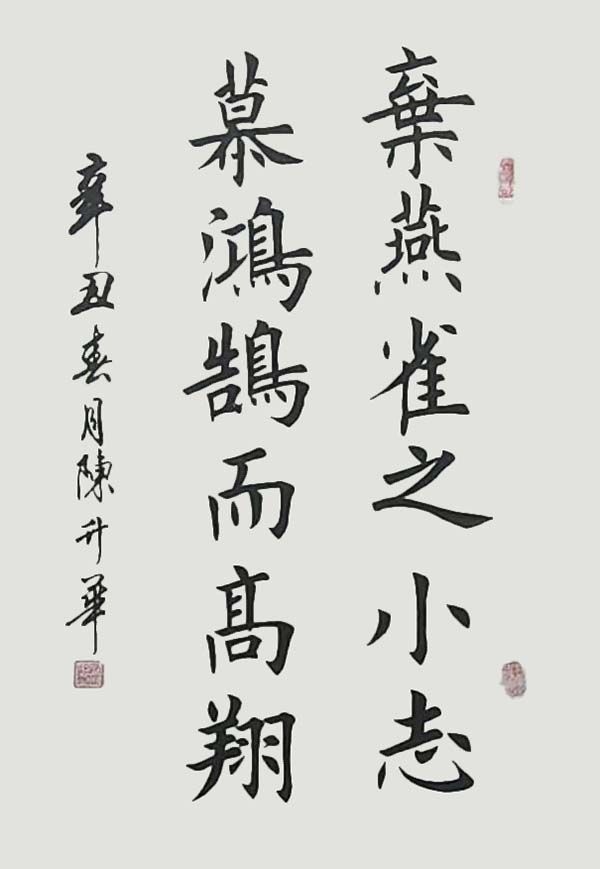 棄燕雀之小志
慕鴻鵠而髙翔
辛丑春月陳升華